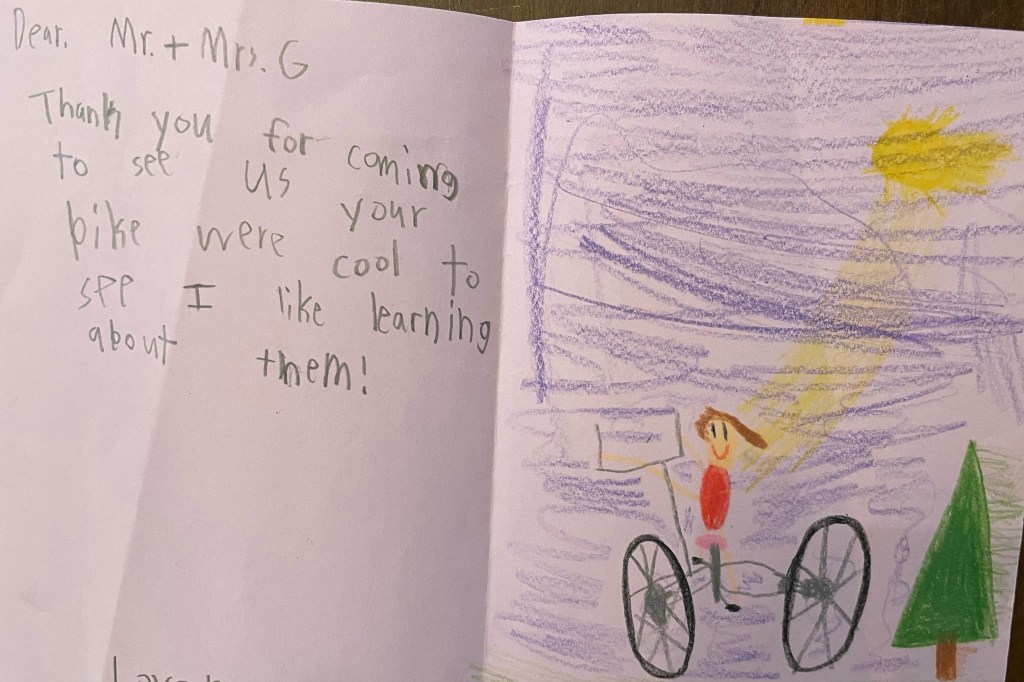 Dear. Mr. + Mrs. G
Thank you for coming
to see us your
bike were cool to
see I like learning
about them!